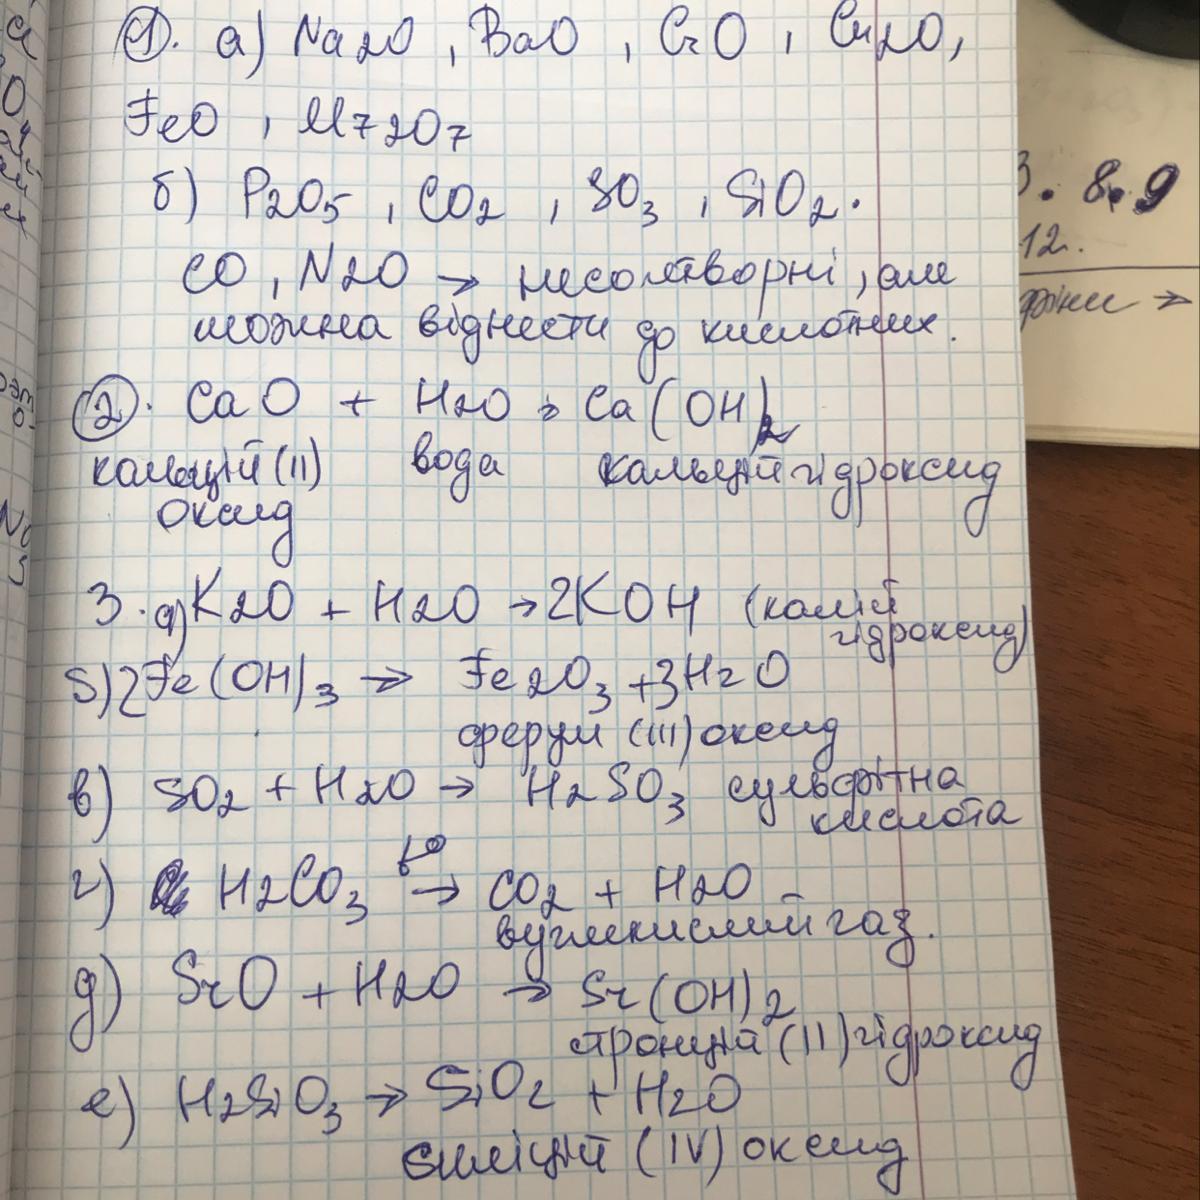 1. а) Na2O, BaO, CrO, Cu2O,
FeO, M72O7
б) P2O5, CO2, SO3, SiO2.
CO, N2O → несолетворні, але
можна віднести до кислотних.
2. CaO + H2O → Ca(OH)2
кальцій (II) вода кальцій гідроксид
оксид
3. а) K2O + H2O → 2KOH (калій
гідроксид)
б) 2Fe(OH)3 → Fe2O3 + 3H2O
ферум (III) оксид
в) SO2 + H2O → H2SO3 сульфітна
кислота
г) H2CO3 t° → CO2 + H2O -
вуглекислий газ.
д) SrO + H2O → Sr(OH)2
стронцій (II) гідроксид
е) H2SiO3 → SiO2 + H2O
силіцій (IV) оксид
3. 8, 9
12.